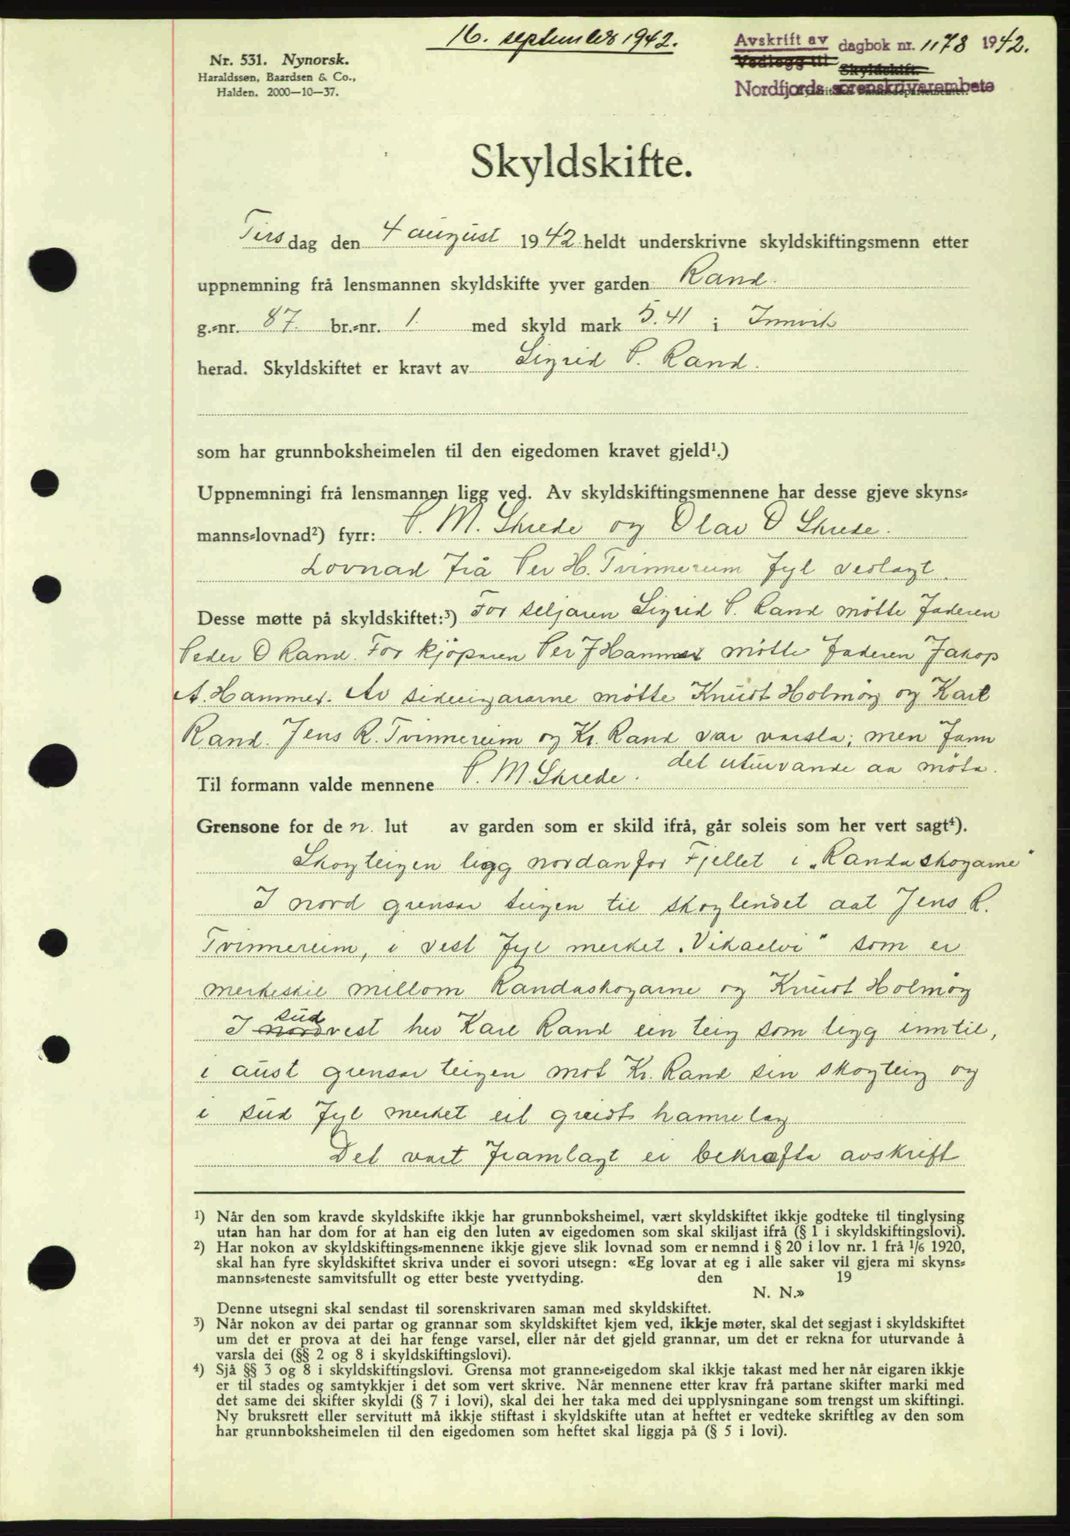 16. september 1942.
Avskrift av dagbok nr. 1178 1942.
Vedlegg til Skyldskift.
Nordfjords sorenskrivarembete
Nr. 531. Nynorsk.
Haraldssen, Baardsen & Co.,
Halden. 2000—10—37.
Skyldskifte.
Tirsdag den 4 august 1942 heldt underskrivne skyldskiftingsmenn etter
uppnemning frå lensmannen skyldskifte yver garden Rand.
g.-nr. 87. br.-nr. 1. med skyld mark 5.41 i Innvik
herad. Skyldskiftet er kravt av Sigrid P. Rand.
som har grunnboksheimelen til den eigedomen kravet gjeld¹.)
Uppnemningi frå lensmannen ligg ved. Av skyldskiftingsmennene har desse gjeve skyns-
manns-lovnad²) fyrr: P. M. Skrede og Olav O Skrede.
Lovnad frå Per H. Tvinnereim fyl vedlagt.
Desse møtte på skyldskiftet:³) For seljaren Sigrid P. Rand møtte faderen
Peder O Rand. For kjöparen Per J Hammer møtte faderen Jakop
A. Hammer. Av sideeigararne møtte Knudt Holmöy og Karl
Rand. Jens R. Tvinnereim og Kr. Rand var varsla; men fann
det uturvande aa møta.
Til formann valde mennene P. M. Skrede.
Grensone for den lut av garden som er skild ifrå, går soleis som her vert sagt⁴).
Skogteigen ligg nordanfor Fjellet i „Randaskogarne"
I nord grensar teigen til skoglendet aat Jens R.
Tvinnereim, i vest fyl merket „Vikaelvi" som er
merkeskil millom Randaskogarne og Knudt Holmöy
I nord sudvest hev Karl Rand ein teig som ligg inntil,
i aust grensar teigen mot Kr. Rand sin skogteig og
i sud fyl merket eit greidt hamrelag
Det vart framlagt ei bekræfta avskrift
¹) Når den som kravde skyldskifte ikkje har grunnboksheimel, vært skyldskiftet ikkje godteke til tinglysing
utan han har dom for at han eig den luten av eigedomen som skal skiljast ifrå (§ 1 i skyldskiftingslovi).
²) Har nokon av skyldskiftings-mennene ikkje gjeve slik lovnad som er nemnd i § 20 i lov nr. 1 frå 1/6 1920,
skal han fyre skyldskiftet skriva under ei sovori utsegn: «Eg lovar at eg i alle saker vil gjera mi skyns-
manns-teneste samvitsfullt og etter beste yvertyding. den 19
N. N.»
Denne utsegni skal sendast til sorenskrivaren saman med skyldskiftet.
³) Når nokon av dei partar og grannar som skyldskiftet kjem ved, ikkje møter, skal det segjast i skyldskiftet
um det er prova at dei har fenge varsel, eller når det gjeld grannar, um det er rekna for uturvande å
varsla dei (§§ 2 og 8 i skyldskiftingslovi).
⁴) Sjå §§ 3 og 8 i skyldskiftingslovi. Grensa mot granne-eigedom skal ikkje takast med her når eigaren ikkje
er til stades og samtykkjer i det som vert skrive. Når mennene etter krav frå partane skifter marki med
det same dei skifter skyldi (§ 7 i lovi), skal dei her taka med dei upplysningane som trengst um skiftingi.
Ny bruksrett eller servitutt må ikkje stiftast i skyldskifte utan at heftet er vedteke skriftleg av den som
har grunnboksheimelen til den eigedomen som heftet skal liggja på (§ 5 i lovi).